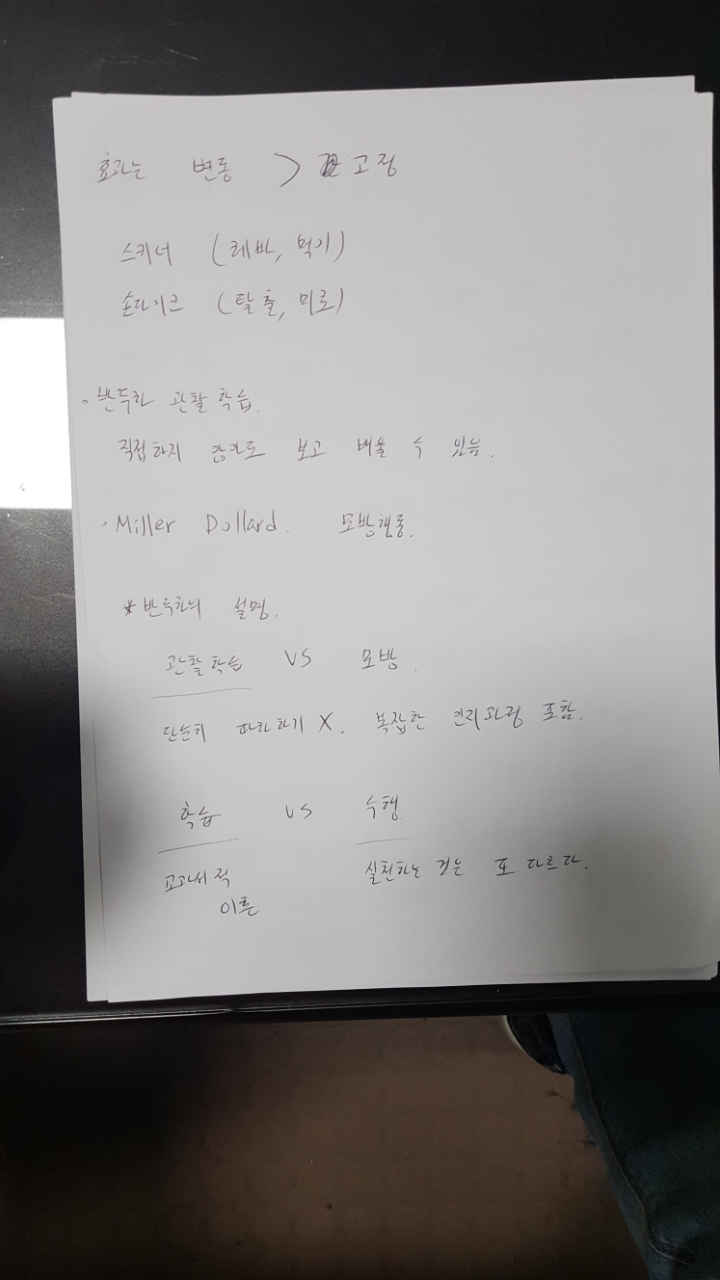 효과는 변동 > 고정
스키너 (레바, 먹기)
손다이크 (탈출, 미로)
· 반두라 관찰학습.
직접하지 않아도 보고 배울 수 있음.
· Miller Dollard. 모방행동.
* 반두라의 설명.
관찰학습 VS 모방.
단순히 따라하기 X. 복잡한 인지과정 포함.
학습 VS 수행
교과서적 실천하는 것은 또 다르다.
이론